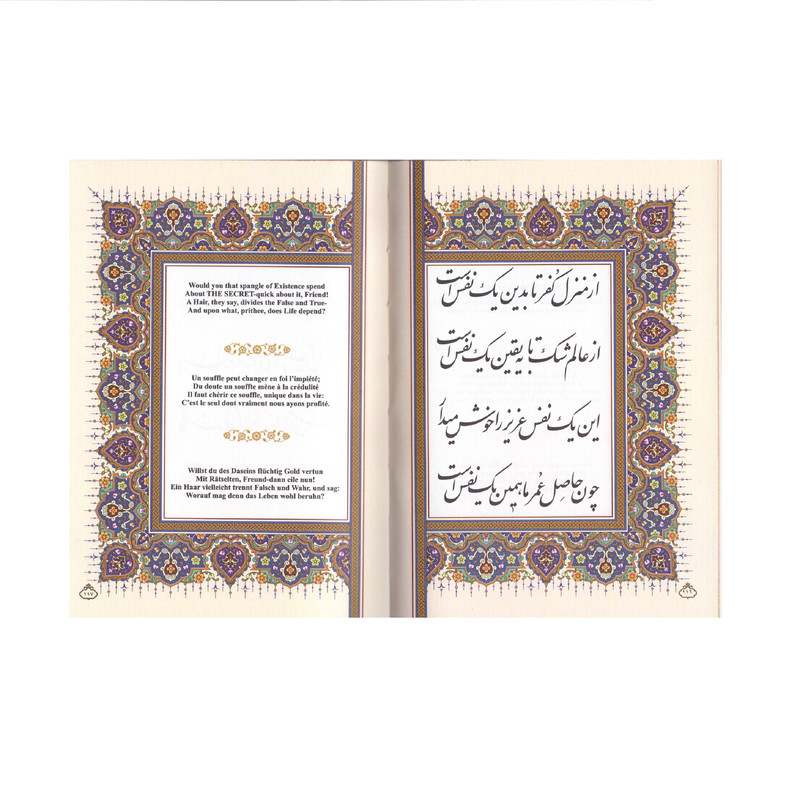 Would you that spangle of Existence spend
About THE SECRET-quick about it, Friend!
A Hair, they say, divides the False and True-
And upon what, prithee, does Life depend?
Un souffle peut changer en foi l'impiété;
Du doute un souffle mène à la crédulité
Il faut chérir ce souffle, unique dans la vie:
C'est le seul dont vraiment nous ayons profité.
Willst du des Daseins flüchtig Gold vertun
Mit Rätselten, Freund-dann eile nun!
Ein Haar vielleicht trennt Falsch und Wahr, und sag:
Worauf mag denn das Leben wohl beruhn?
۱۱۷
از منزل کفر تا بدین یک نفس است
از عالم شک تا به یقین یک نفس است
این یک نفس عزیز را خوش میدار
چون حاصل عمر ما همین یک نفس است
۱۱۶